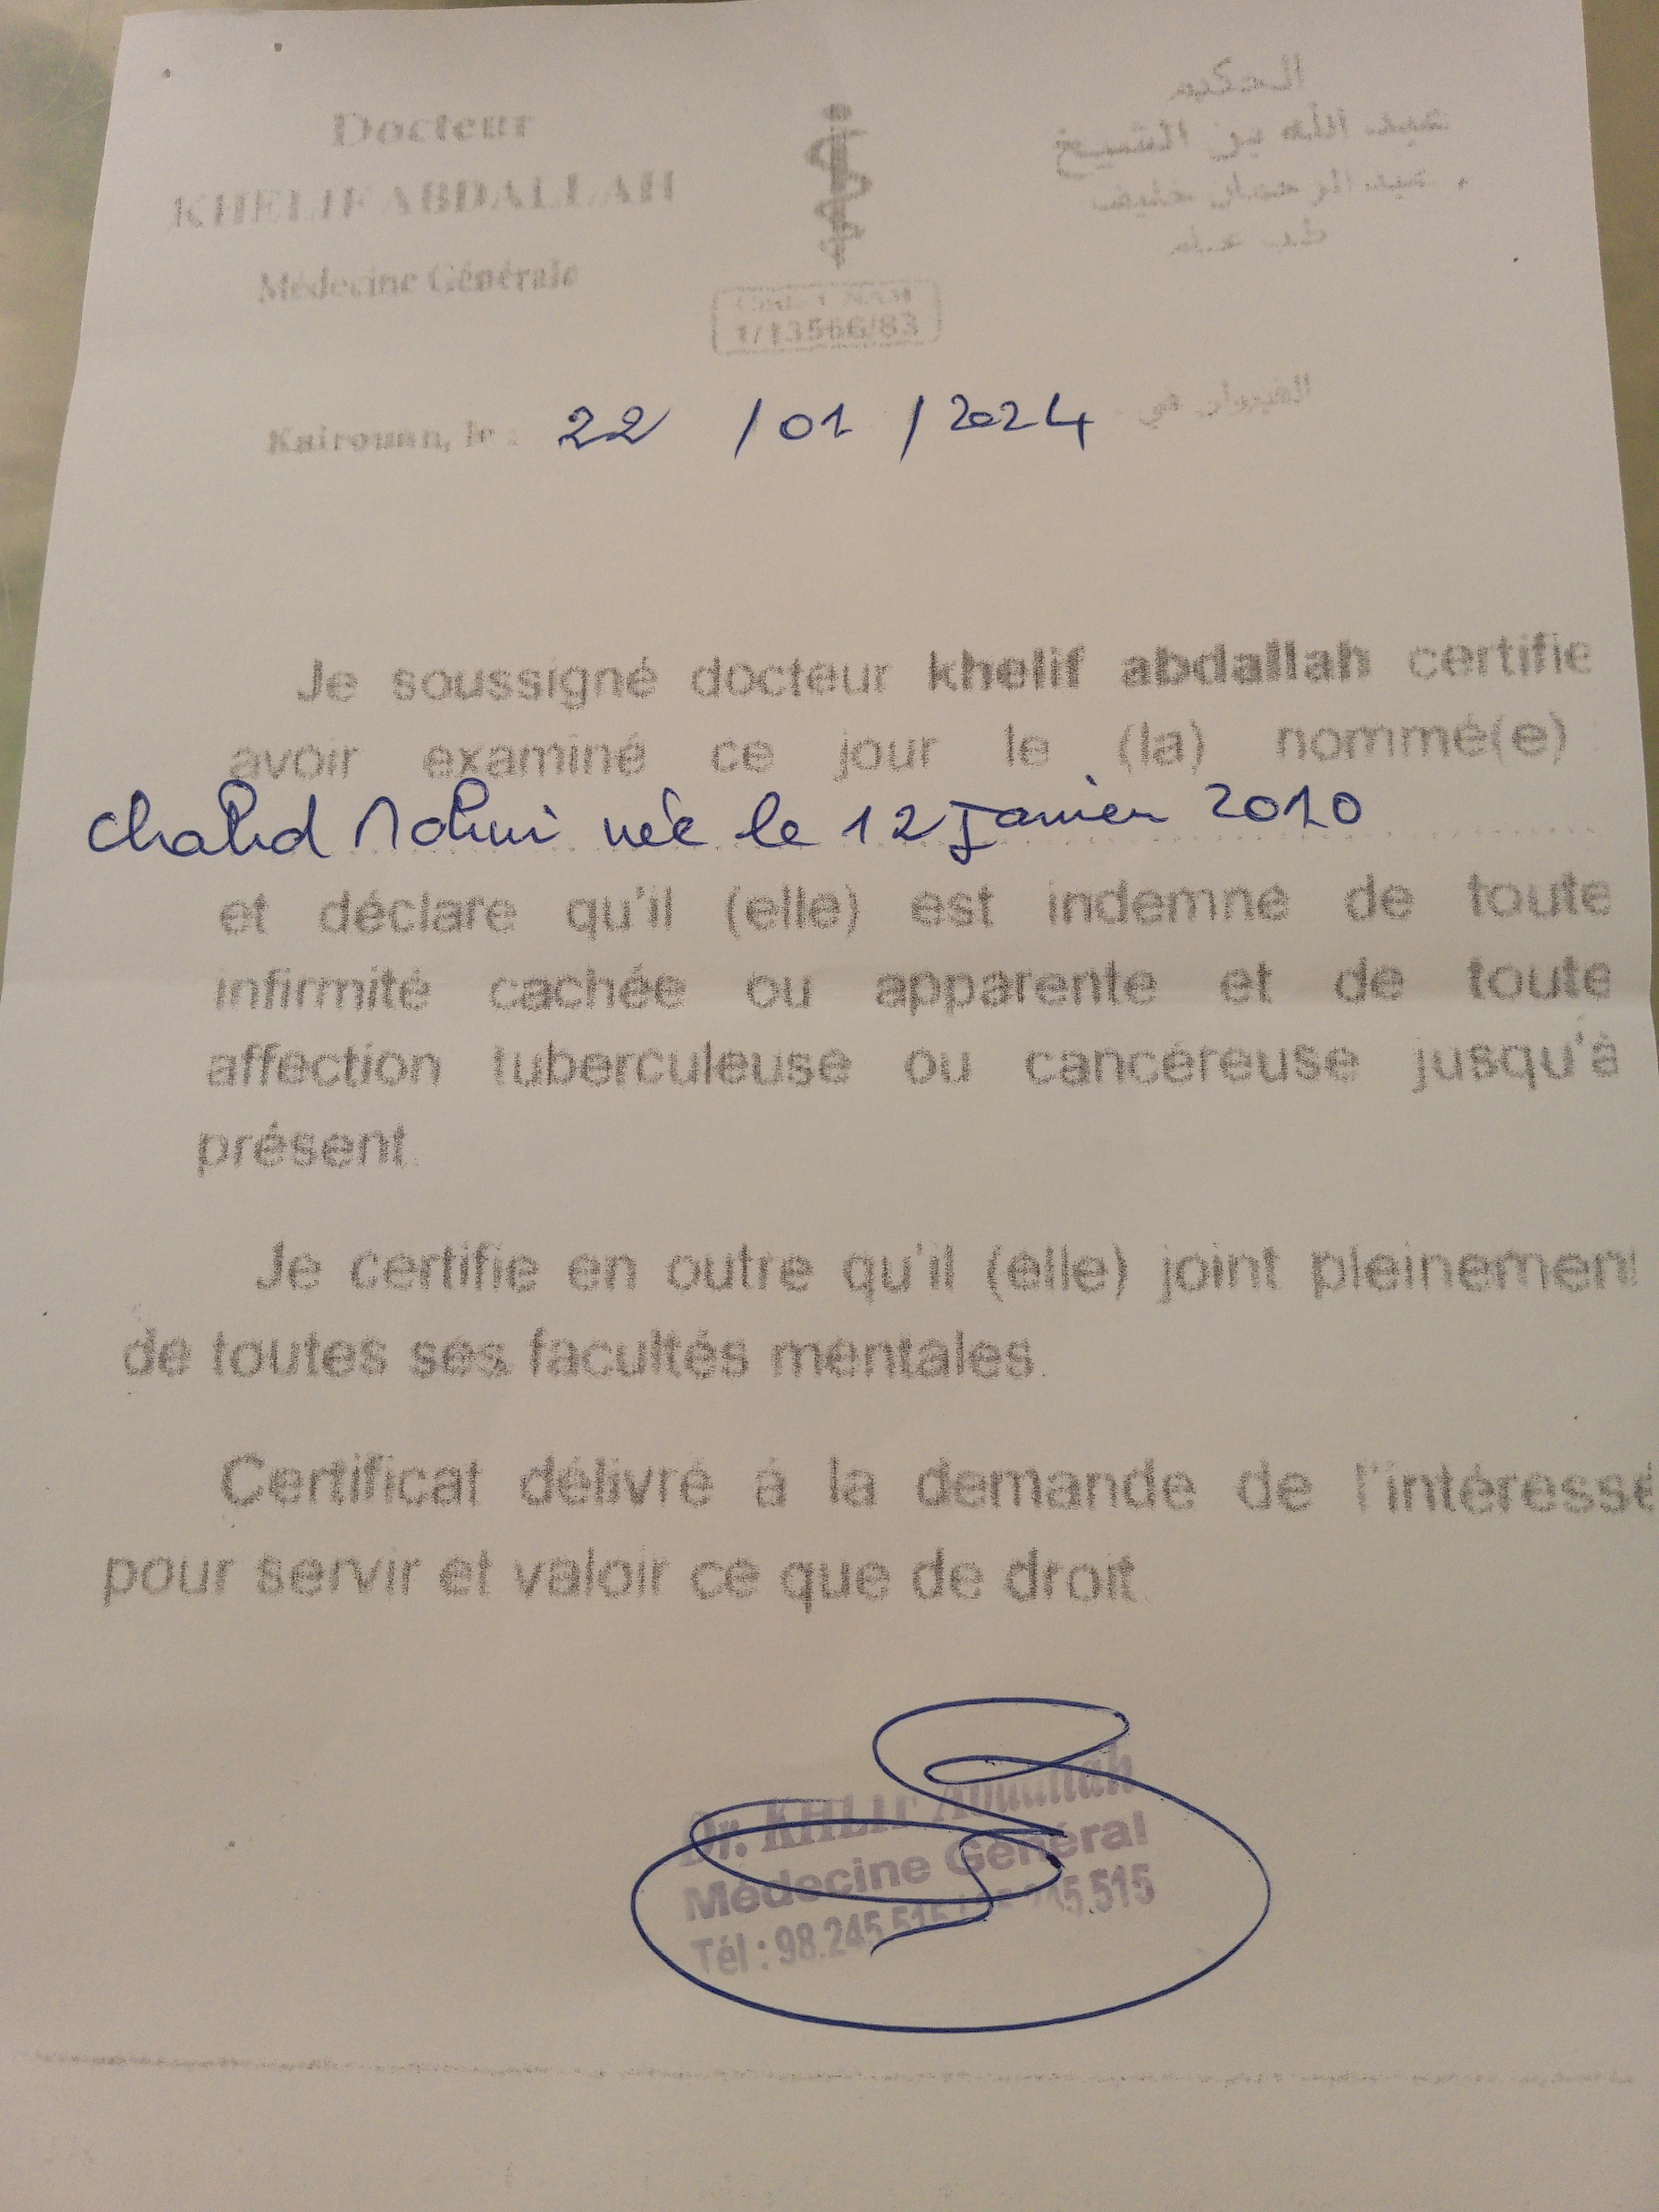 Docteur
KHELIF ABDALLAH
Médecine Générale
الحكيم
عبد الله بن الشيخ
1/13566/83
Kairouan, le : 22 /01 /2024 القيروان في
Je soussigné docteur khelif abdallah certifie
avoir examiné ce jour le (la) nommé(e)
née le 12 Janvier 2010
et déclare qu'il (elle) est indemne de toute
infirmité cachée ou apparente et de toute
affection tuberculeuse ou cancéreuse jusqu'à
présent.
Je certifie en outre qu'il (elle) joint pleinement
de toutes ses facultés mentales.
Certificat délivré à la demande de l'intéressé
pour servir et valoir ce que de droit.
Dr. KHLIF Abdallah
Médecine Général
Tél : 98.245.515